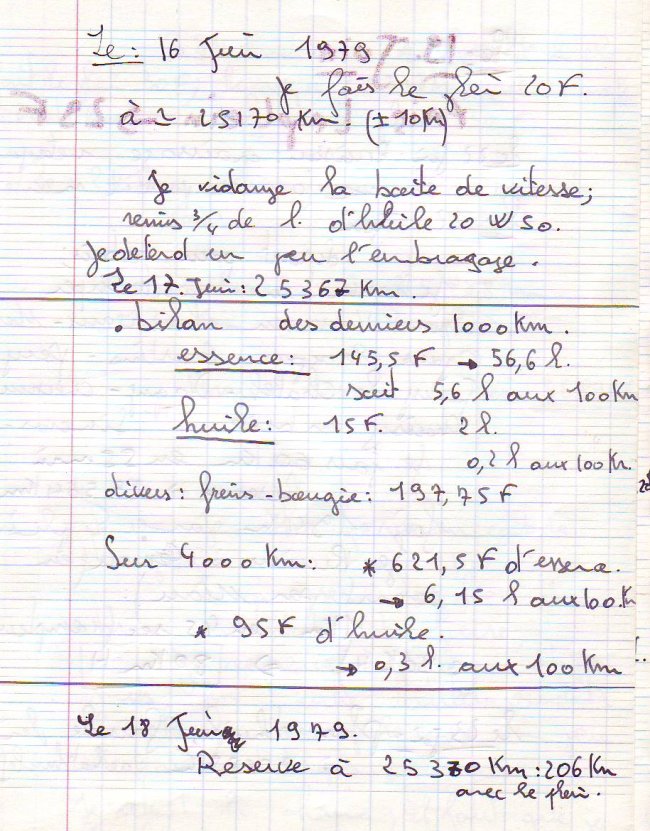 Le: 16 Juin 1979
Je fais le plein 20F.
à ≃ 25170 Km. (± 10 Km)
Je vidange la boite de vitesse;
remis 3/4 de l. d'huile 20 W 50.
Je détend un peu l'embrayage.
Le 17. Juin: 25367 Km.
. bilan des derniers 1000 Km.
essence: 145,5 F → 56,6 l.
soit 5,6 l aux 100 Km
huile: 15 F. 2 l.
0,2 l aux 100 Km.
divers: freins - bougie: 197,75 F
Sur 4000 Km: * 621,5 F d'essence.
→ 6,15 l aux 100. K
* 95 F d'huile.
→ 0,3 l. aux 100 Km
Le 18 Juin 1979.
Reserve à 25370 Km: 206 Km
avec le plein.